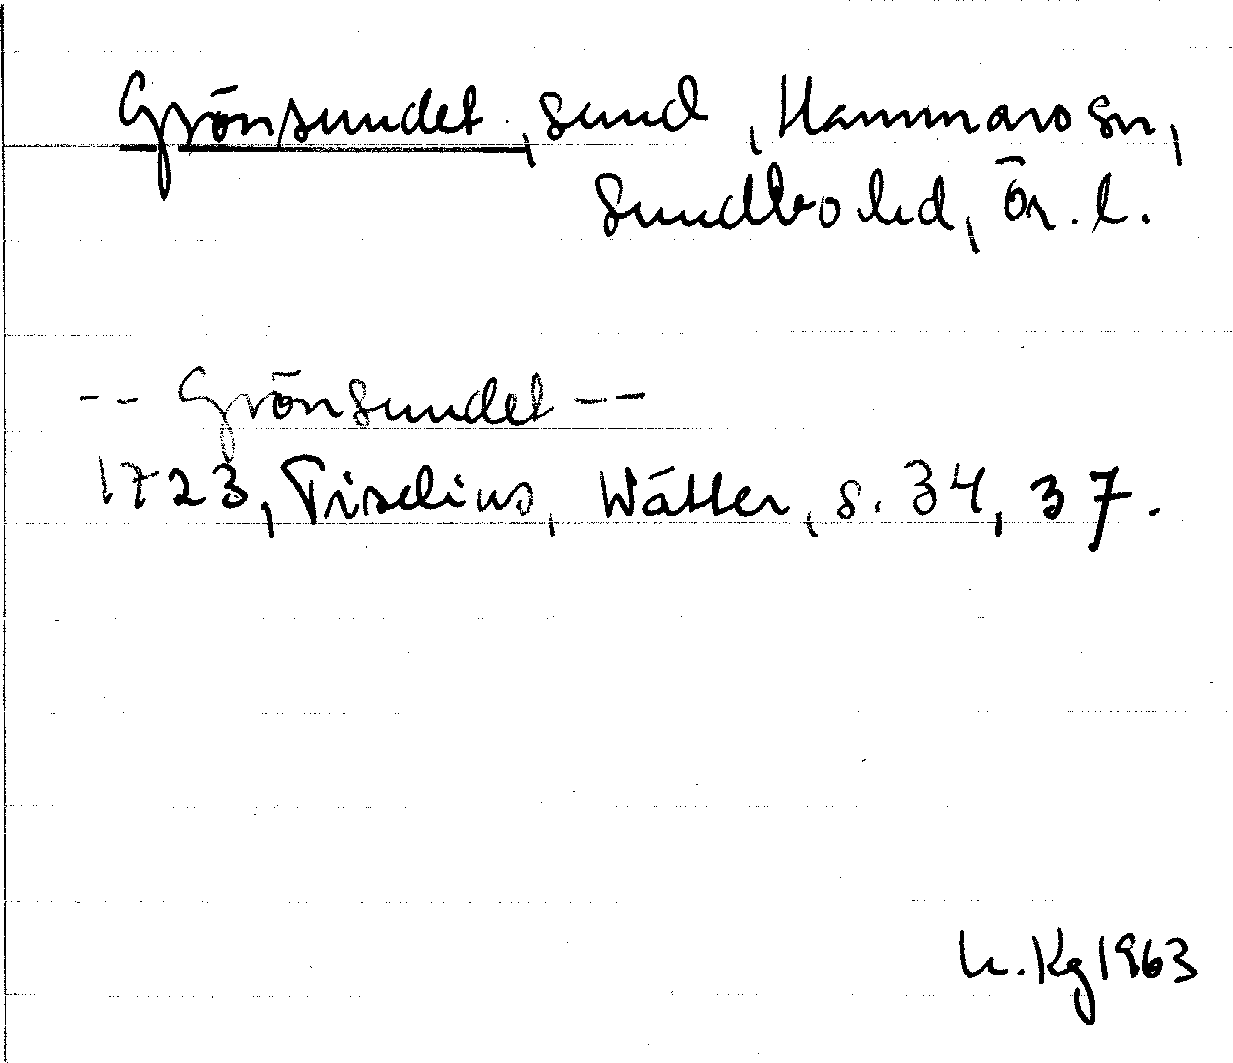 Grönsundet, sund, Hammars sn,
Sundbo hd, Ör. l.
-- Grönsundet --
1723, Tiselius, Wätter, s. 34, 37.
h. Kg 1963